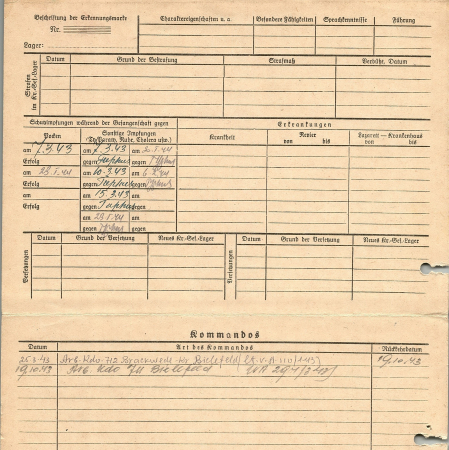 Beschriftung der Erkennungsmarke
Nr.
Lager:
Charaktereigenschaften u. a.
Besondere Fähigkeiten
Sprachkenntnisse
Führung
Strafen im Kr.-Gef.-Lager
Datum
Grund der Bestrafung
Strafmaß
Verbüßt, Datum
Schutzimpfungen während der Gefangenschaft gegen
Erkrankungen
Pocken
Sonstige Impfungen
(Ty. Parath. Ruhr, Cholera usw.)
Krankheit
Revier
von bis
Lazarett – Krankenhaus
von bis
am 7.3.43 am 7.3.43 am
Erfolg gegen gegen
am 23.1.44 am 10.3.43 am
Erfolg gegen gegen
am am 15.3.43 am
Erfolg gegen gegen
am 23.1.44 am
gegen gegen
Versetzungen
Datum
Grund der Versetzung
Neues Kr.-Gef.-Lager
Versetzungen
Datum
Grund der Versetzung
Neues Kr.-Gef.-Lager
Kommandos
Datum
Art des Kommandos
Rückkehrdatum
25.3.43 Arb. Kdo 712 Brackwede Bielefeld 19.10.43
19.10.43 Arb. Kdo Bielefeld